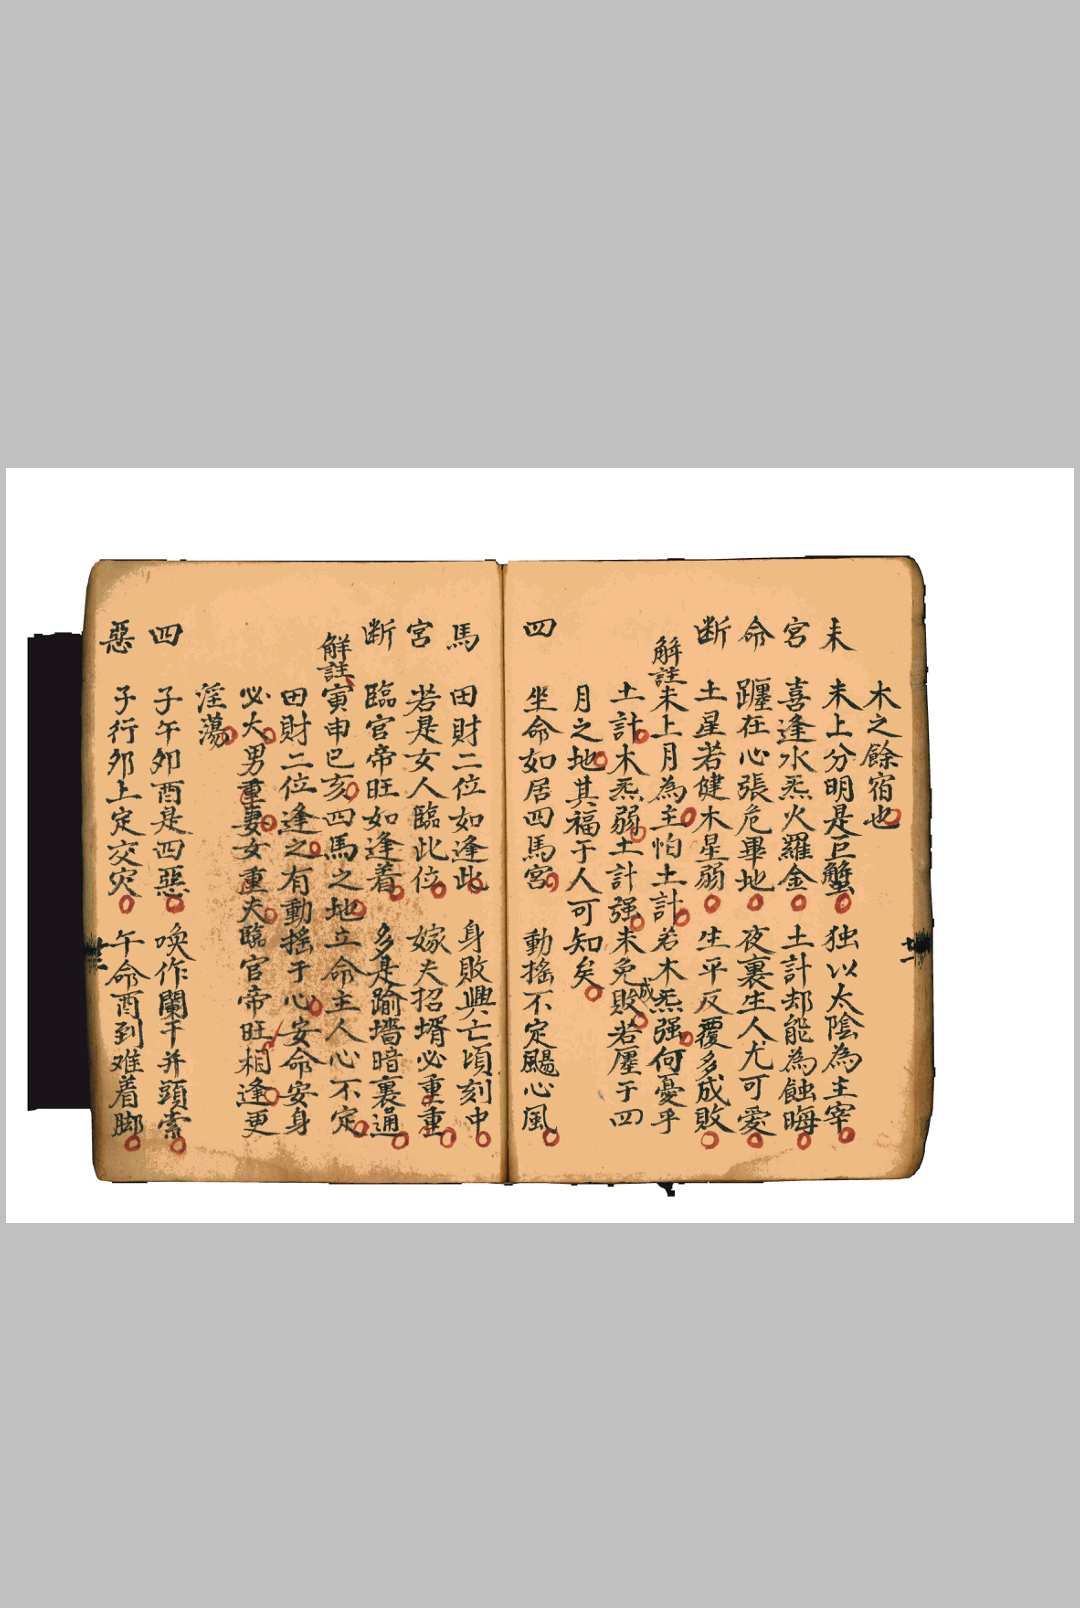 木之餘宿也
未 未上分明是巨蟹 独以太陰為主宰
宮 喜逢水炁火羅金 土計却能為蝕晦
命 躔在心張危畢地 夜裏生人尤可愛
断 土星若健木星弱 生平反覆多成敗
解註 未上月為主怕土計若木炁强何憂乎
土計木炁弱土計强未免成敗若躔于四
月之地其福于人可知矣
四 坐命如居四馬宮 動搖不定颺心風
馬 田財二位如逢此 身敗興亡頃刻中
宮 若是女人臨此位 嫁夫招壻必重重
断 臨官帝旺如逢着 多是踰墻暗裏通
解註 寅申巳亥四馬之地立命主人心不定
田財二位逢之有動搖于心安命安身
必大男重妻女重夫臨官帝旺相逢更
淫蕩
四 子午夘酉是四惡 喚作闌干并頭索
惡 子行夘上定交灾 午命酉到难着脚